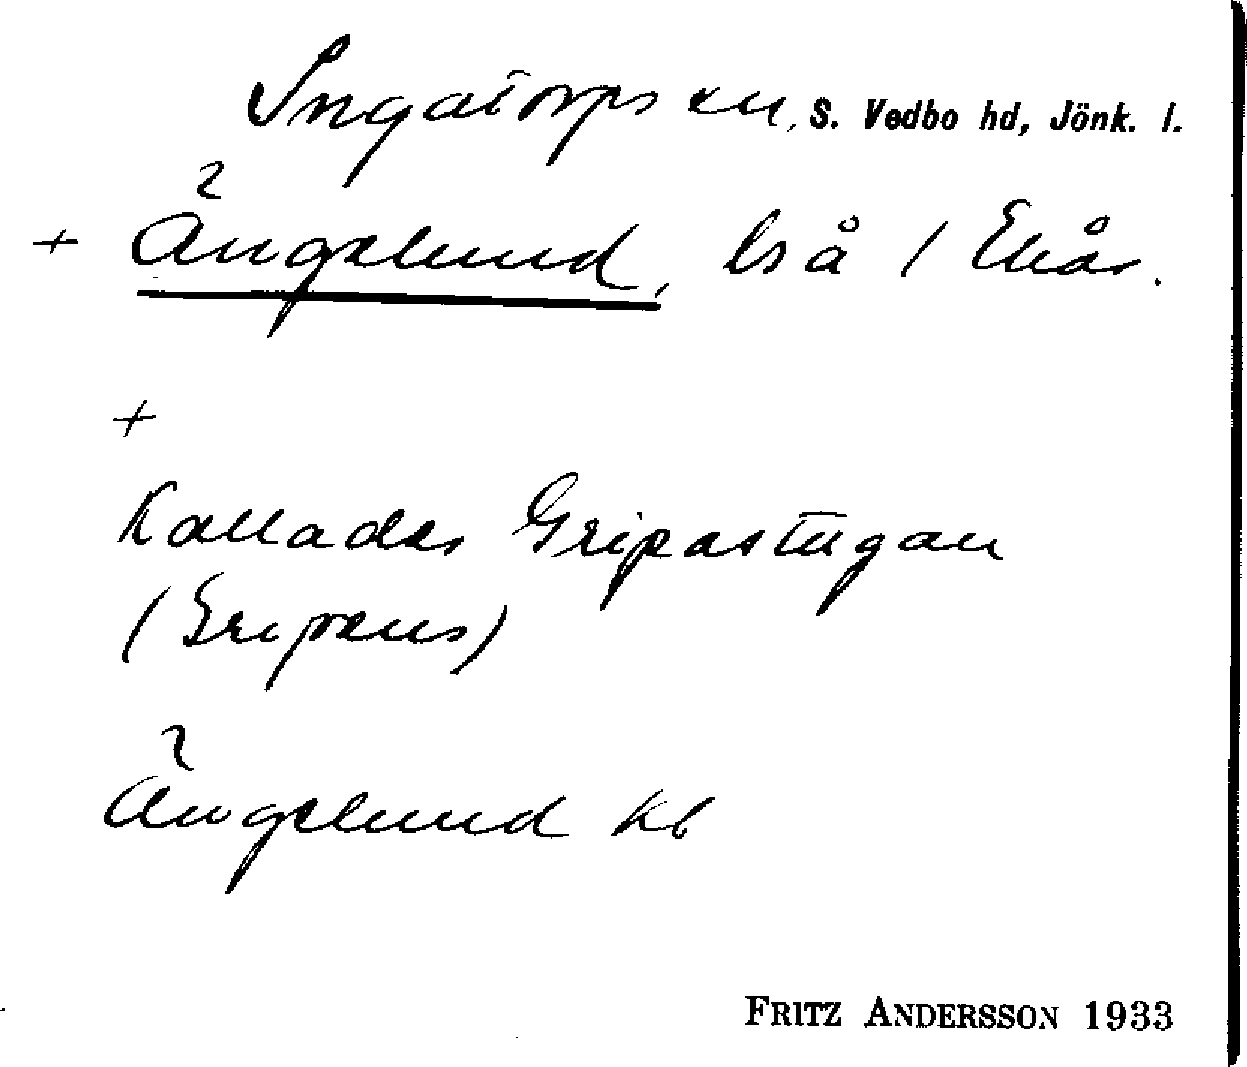 Ingatorps sn, S. Vedbo hd, Jönk. l.
+ Ängslund, bs å / Ekår.
+
Kallades Gripastugan
(Gripens)
Ängslund kb
FRITZ ANDERSSON 1933